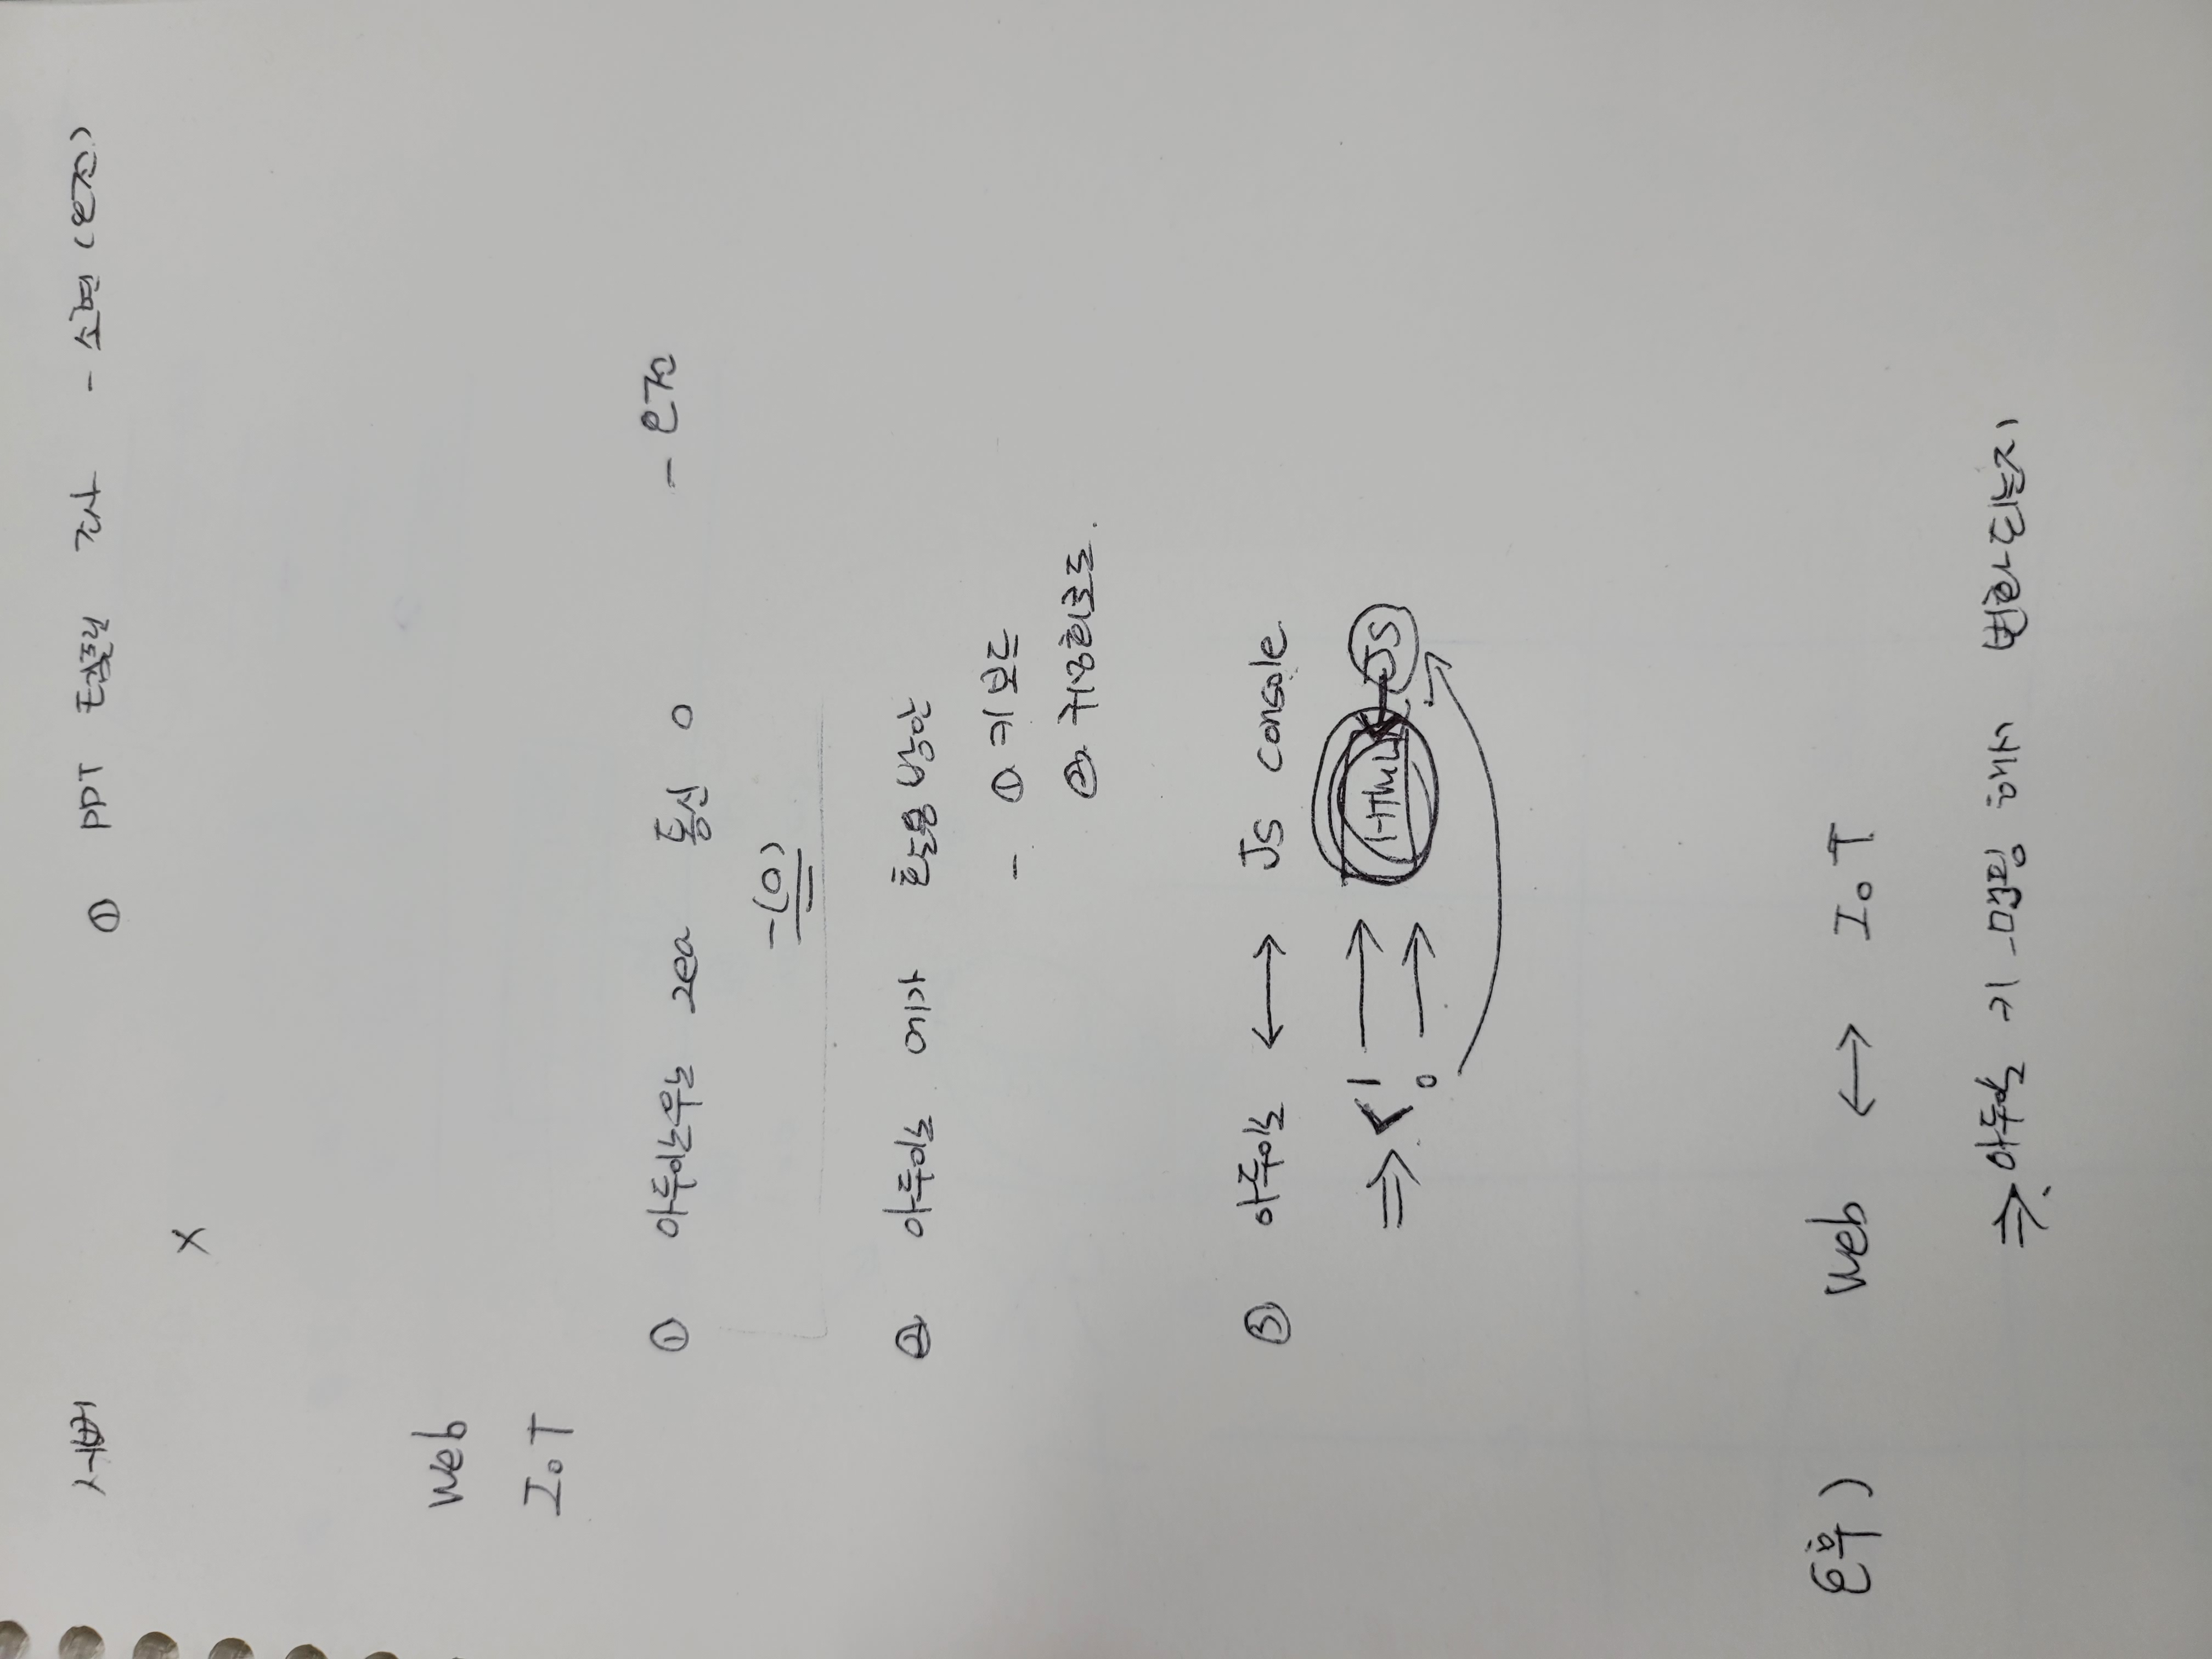 서버 ① PPT 템플릿 조사 - 소현 (오전)
X
Web
IoT
① 아두이노우노 2ea 통신 O - 오전
- (O)
② 아두이노 메가 활용방안
- ① 키보드
②
③ 아두이노 ↔ JS console
⇒ < 1 → HTML ← JS
0 →
오후) Web ↔ IoT
⇒ 아두이노 키 맵핑 해서 변화되는지